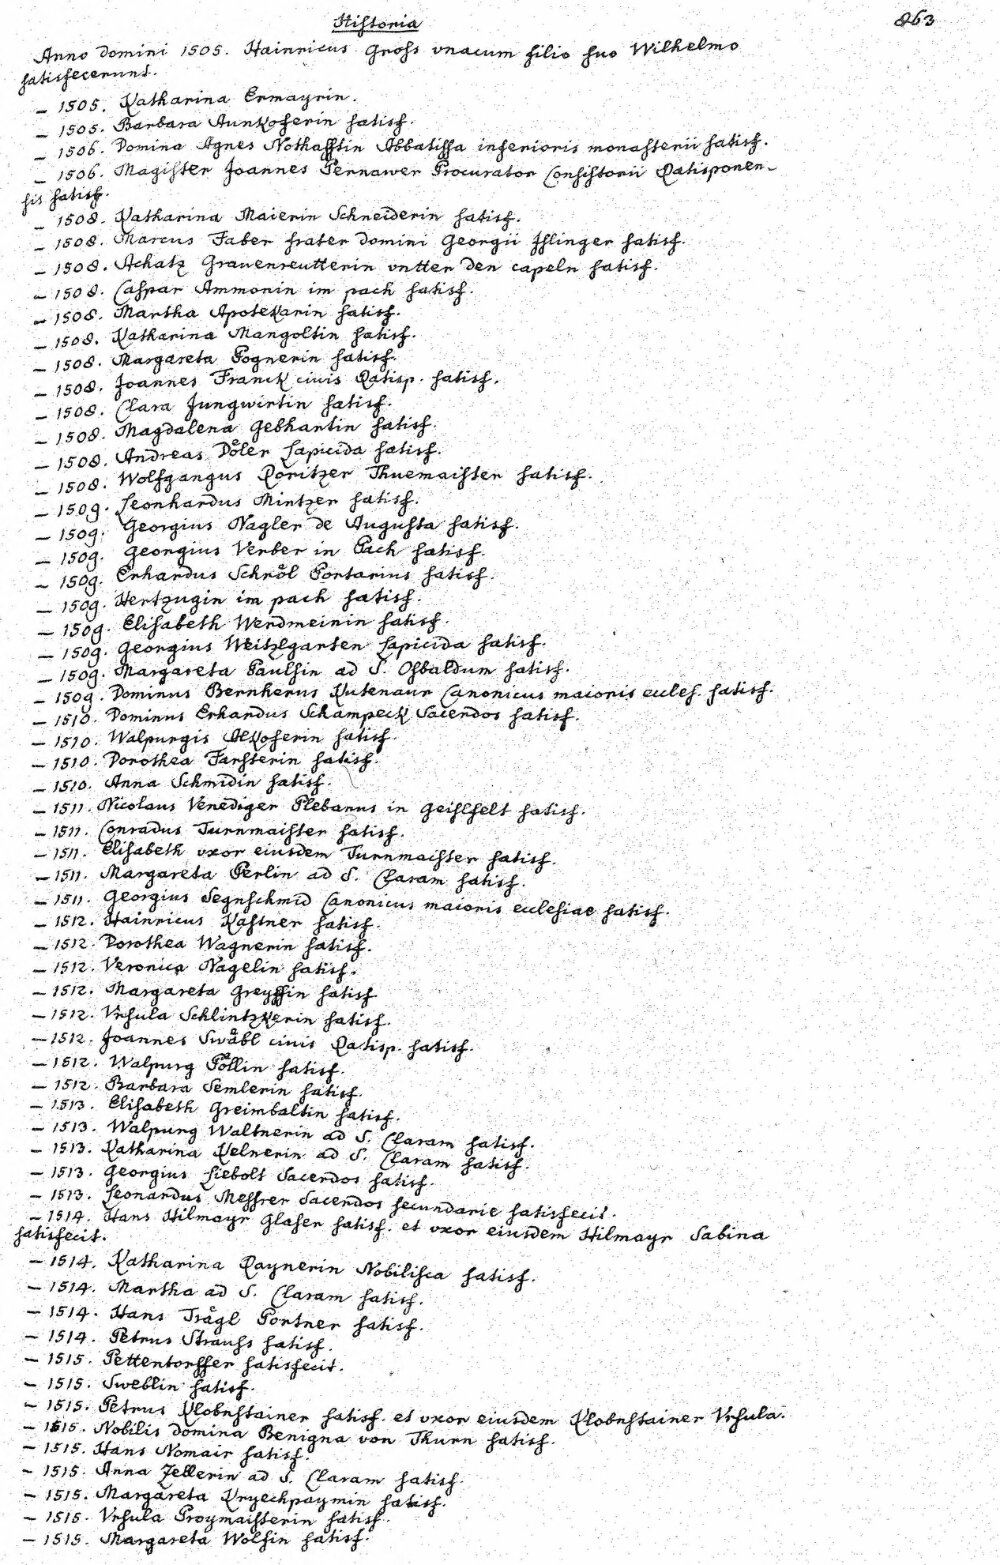 Historia
863
Anno domini 1505. Hainricus Gross vnacum filio suo Wilhelmo
satisfecerunt.
– 1505. Katharina Ermayrin.
– 1505. Barbara Aunkoferin satisf.
– 1506. Domina Agnes Nothafftin Abbatissa inferioris monasterii satisf.
– 1506. Magister Joannes Pernawer Procurator Consistorii Ratisponen-
sis satisf.
– 1508. Katharina Maierin Schneiderin satisf.
– 1508. Marcus Faber frater domini Georgii Islinger satisf.
– 1508. Achatz Grauenreutterin vntter den capeln satisf.
– 1508. Caspar Ammonin im pach satisf.
– 1508. Martha Apotekarin satisf.
– 1508. Katharina Mangoltin satisf.
– 1508. Margareta Pognerin satisf.
– 1508. Joannes Franck ciuis Ratisp. satisf.
– 1508. Clara Jungwirtin satisf.
– 1508. Magdalena Gebhartin satisf.
– 1508. Andreas Döler Lapicida satisf.
– 1508. Wolfgangus Roritzer Thuemaister satisf.
– 1509. Leonhardus Mintzer satisf.
– 1509. Georgius Nagler de Augusta satisf.
– 1509. Georgius Verber in Pach satisf.
– 1509. Erhardus Schröl Portarius satisf.
– 1509. Hertzugin im pach satisf.
– 1509. Elisabeth Werdmeinin satisf.
– 1509. Georgius Weitzlgarten Lapicida satisf.
– 1509. Margareta Paulsin ad S. Osbaldum satisf.
– 1509. Dominus Bernherus Kutenaur Canonicus maioris eccles. satisf.
– 1510. Dominus Erhardus Schampeck Sacerdos satisf.
– 1510. Walpurgis Alkoferin satisf.
– 1510. Dorothea Farsterin satisf.
– 1510. Anna Schmidin satisf.
– 1511. Nicolaus Venediger Plebanus in Geislfelt satisf.
– 1511. Conradus Turnmaister satisf.
– 1511. Elisabeth vxor eiusdem Turnmaister satisf.
– 1511. Margareta Perlin ad S. Claram satisf.
– 1511. Georgius Segnschmid Canonicus maioris ecclesiae satisf.
– 1512. Hainricus Kastner satisf.
– 1512. Dorothea Wagnerin satisf.
– 1512. Veronica Nagelin satisf.
– 1512. Margareta Greyffin satisf
– 1512. Vrsula Schlintzkerin satisf.
– 1512. Joannes Swäbl ciuis Ratisp. satisf.
– 1512. Walpurg Pöllin satisf.
– 1512. Barbara Semlerin satisf.
– 1513. Elisabeth Greimbaltin satisf.
– 1513. Walpurg Waltnerin ad S. Claram satisf.
– 1513. Katharina Kelnerin ad S. Claram satisf.
– 1513. Georgius Liebolt Sacerdos satisf.
– 1513. Leonardus Messrer Sacerdos secundarie satisfecit.
– 1514. Hans Hilmayr Glaser satisf. et vxor eiusdem Hilmayr Sabina
satisfecit.
– 1514. Katharina Raynerin Nobilisca satisf.
– 1514. Martha ad S. Claram satisf.
– 1514. Hans Trägl Portner satisf.
– 1514. Petrus Strauss satisf.
– 1515. Pettentorffer satisfecit.
– 1515. Sweblin satisf.
– 1515. Petrus Klobnstainer satisf. et vxor eiusdem Klobnstainer Vrsula.
– 1515. Nobilis domina Benigna von Thurn satisf.
– 1515. Hans Nomair satisf.
– 1515. Anna Zellerin ad S. Claram satisf.
– 1515. Margareta Kryechpaymin satisf.
– 1515. Vrsula Proymaisterin satisf.
– 1515. Margareta Wolfin satisf.